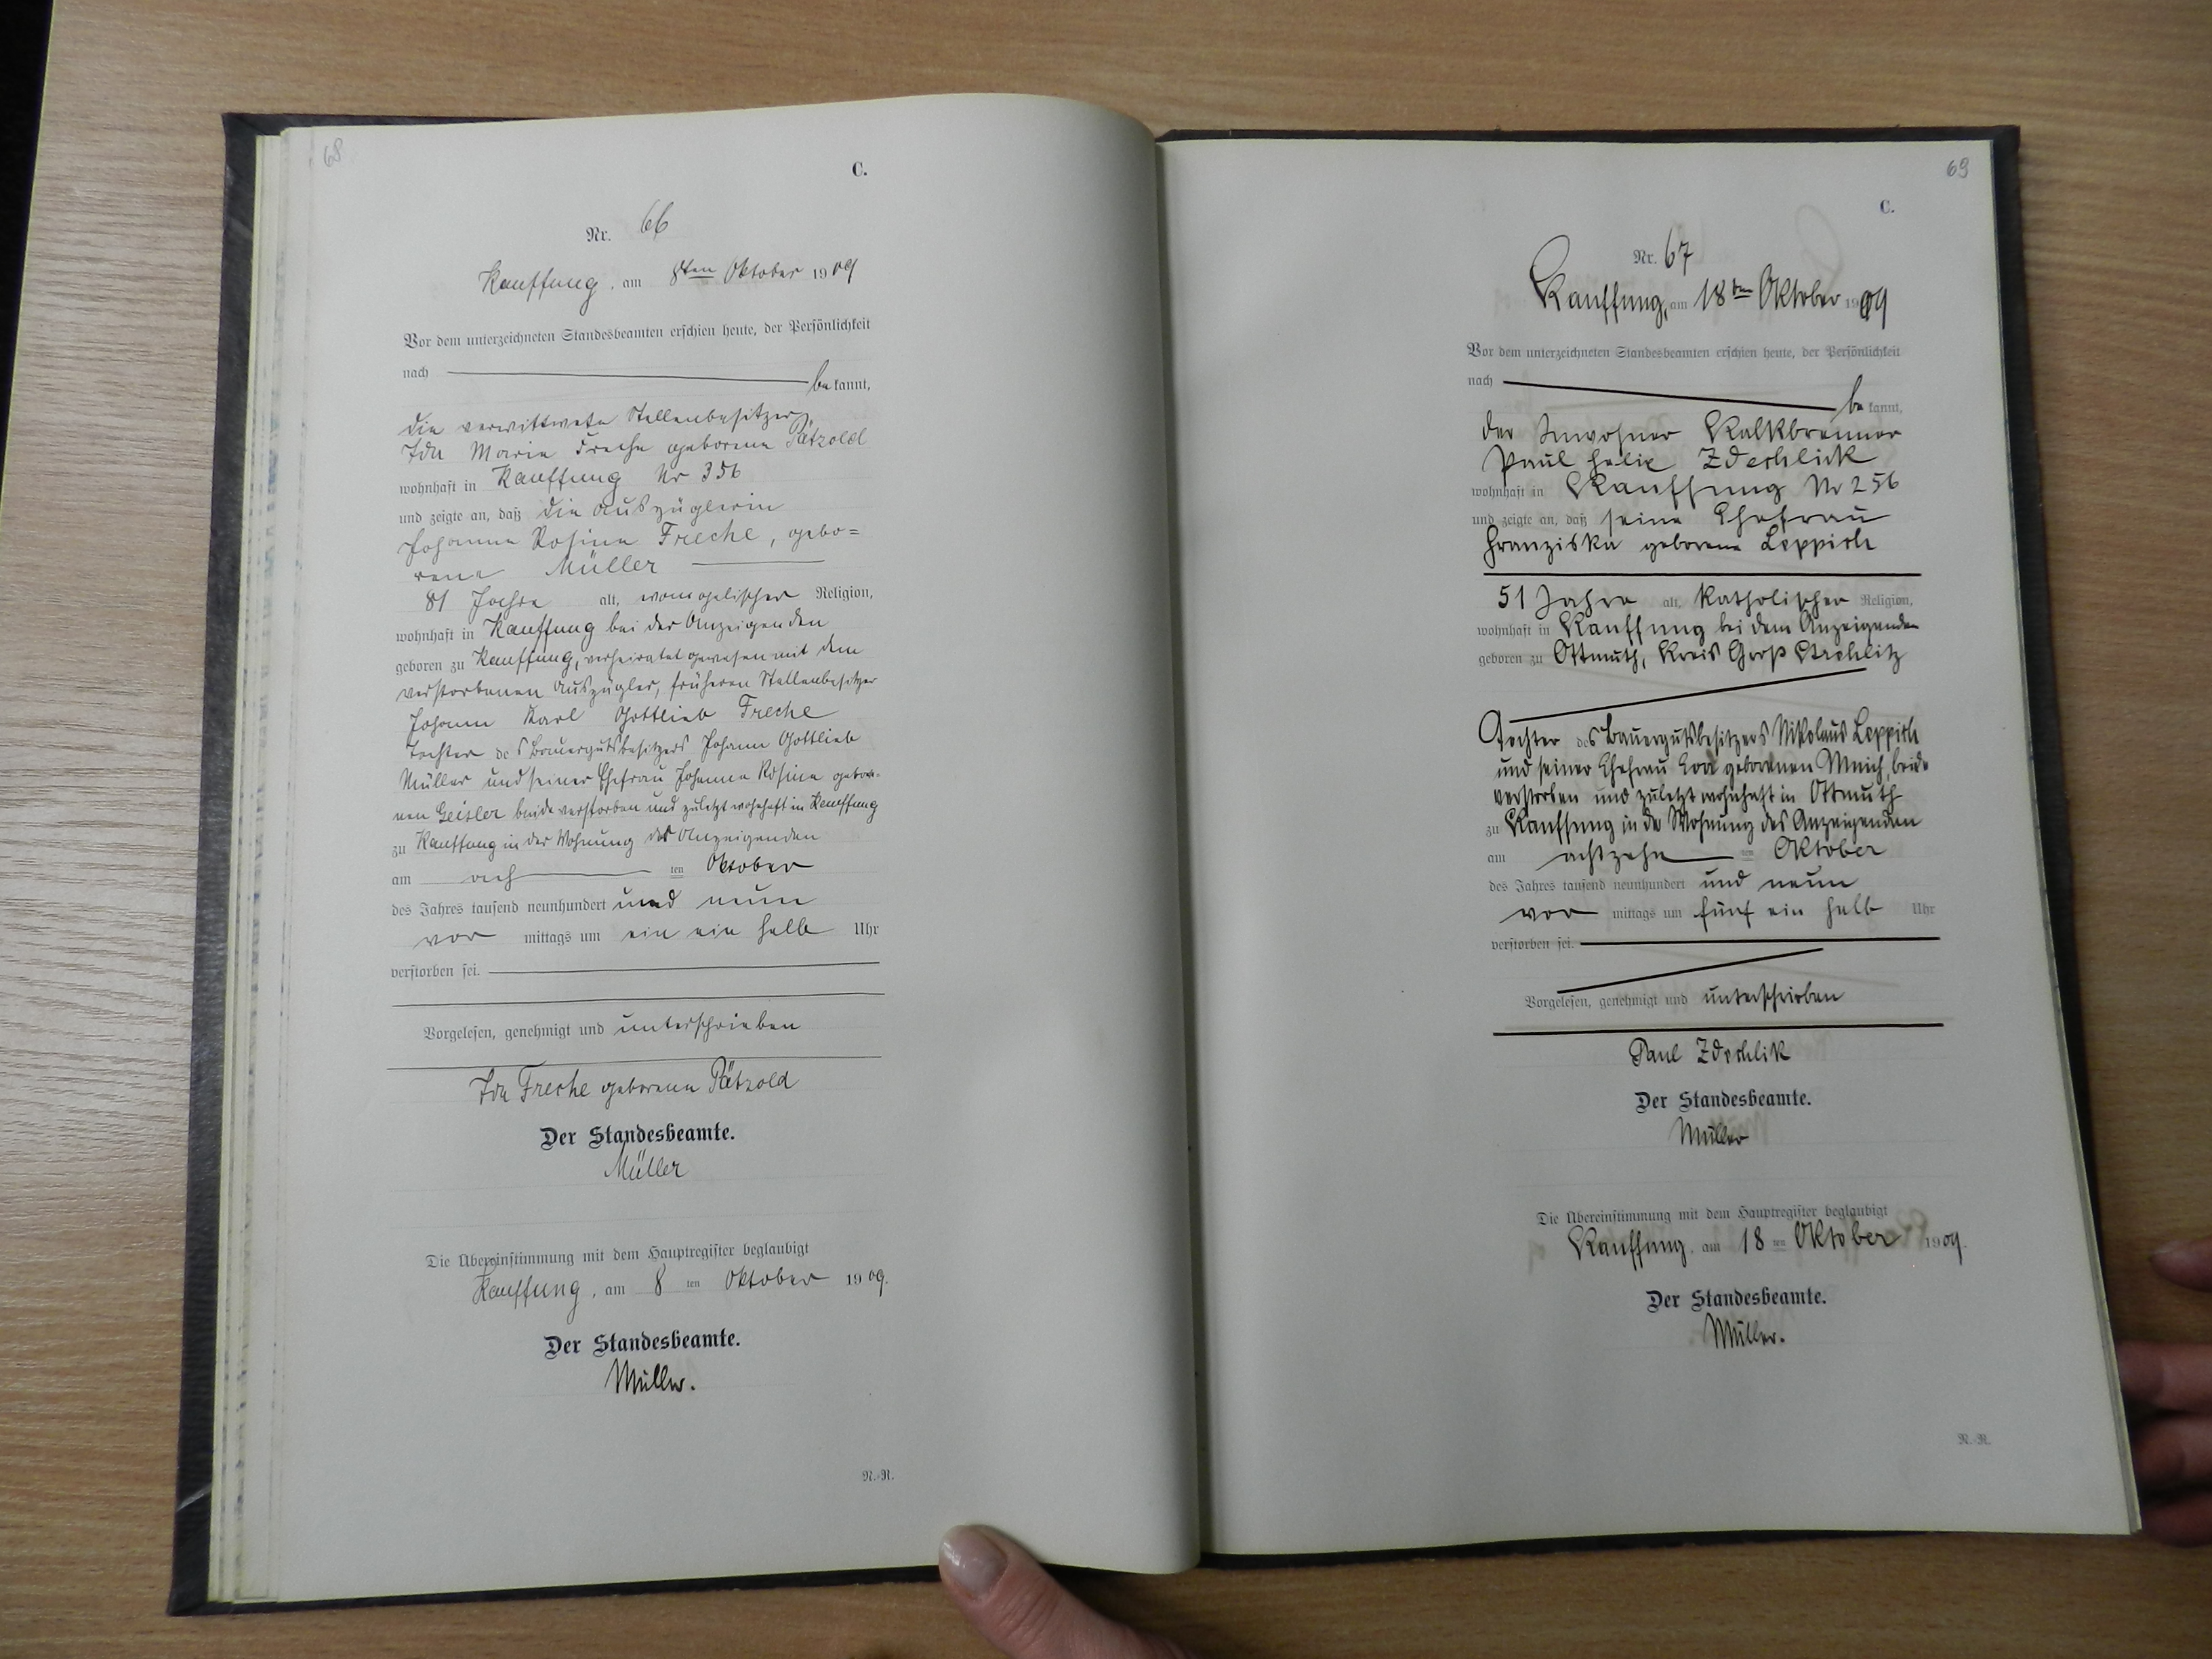 68
C.
Nr. 66
Kauffung, am 8ten Oktober 1909
Vor dem unterzeichneten Standesbeamten erschien heute, der Persönlichkeit
nach be kannt,
die verwittwete Stellenbesitzer
Ida Maria Freche geborene Pätzold
wohnhaft in Kauffung Nr 356
und zeigte an, daß die Auszüglerin
Johanne Rosine Freche, gebo=
rene Müller
81 Jahre alt, evangelischer Religion,
wohnhaft in Kauffung bei der Anzeigenden
geboren zu Kauffung, verheiratet gewesen mit dem
verstorbenen Auszügler, früheren Stellenbesitzer
Johann Karl Gottlieb Freche
Tochter des Bauergutsbesitzers Johann Gottlieb
Müller und seiner Ehefrau Johanne Rosine gebor-
nen Geisler beide verstorben und zuletzt wohnhaft in Kauffung
zu Kauffung in der Wohnung der Anzeigenden
am ach ten Oktober
des Jahres tausend neunhundert und neun
vor mittags um ein ein halb Uhr
verstorben sei.
Vorgelesen, genehmigt und unterschrieben
Ida Freche geborene Pätzold
Der Standesbeamte.
Müller
Die Übereinstimmung mit dem Hauptregister beglaubigt
Kauffung, am 8 ten Oktober 1909.
Der Standesbeamte.
Müller.
N.-R.
69
C.
Nr. 67
Kauffung, am 18ten Oktober 1909
Vor dem unterzeichneten Standesbeamten erschien heute, der Persönlichkeit
nach be kannt,
der Inwohner Kalkbrenner
Paul Felix Zdechlick
wohnhaft in Kauffung Nr 256
und zeigte an, daß seine Ehefrau
Franziska geborene Leppich
51 Jahre alt, katholischer Religion,
wohnhaft in Kauffung bei dem Anzeigenden
geboren zu Ottmuth, Kreis Groß Strehlitz
Tochter des Bauergutsbesitzers Nikolaus Leppich
und seiner Ehefrau Eva gebornen Mnich, beide
verstorben und zuletzt wohnhaft in Ottmuth
zu Kauffung in de Wohnung des Anzeigenden
am achtzehn ten Oktober
des Jahres tausend neunhundert und neun
vor mittags um fünf ein halb Uhr
verstorben sei.
Vorgelesen, genehmigt und unterschrieben
Paul Zdechlik
Der Standesbeamte.
Müller
Die Übereinstimmung mit dem Hauptregister beglaubigt
Kauffung, am 18 ten Oktober 1909.
Der Standesbeamte.
Müller.
N.-R.